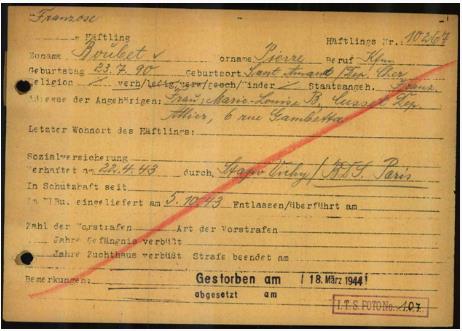 Franzose
Häftling Häftlings Nr.: 10267
Zuname Boubet Vorname Pierre Beruf Kfm
Geburtstag 23.7.90 Geburtsort Saint Amand / Dep. Cher
Religion / verh/ledig/verw/gesch/Kinder / Staatsangeh. Franz.
Adresse der Angehörigen: Frau: Marie-Louise B, Cusset Dep.
Allier, 6 rue Gambetta
Letzter Wohnort des Häftlings:
Sozialversicherung
Verhaftet am 22.4.43 durch Stapo Vichy / BDS. Paris
In Schutzhaft seit
In KLBu. eingeliefert am 5.10.43 Entlassen/überführt am
Zahl der Vorstrafen Art der Vorstrafen
Jahre Gefängnis verbüßt
Jahre Zuchthaus verbüßt Strafe beendet am
Bemerkungen: Gestorben am 18. März 1944
abgesetzt am
I.T.S. FOTO No. 107